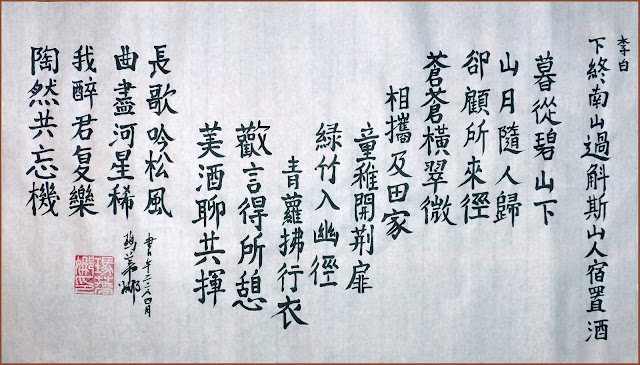 李白
下終南山過斛斯山人宿置酒
暮從碧山下
山月隨人歸
卻顧所來徑
蒼蒼橫翠微
相攜及田家
童稚開荆扉
緑竹入幽徑
青蘿拂行衣
歡言得所憩
美酒聊共揮
長歌吟松風
曲盡河星稀
我醉君复樂
陶然共忘機